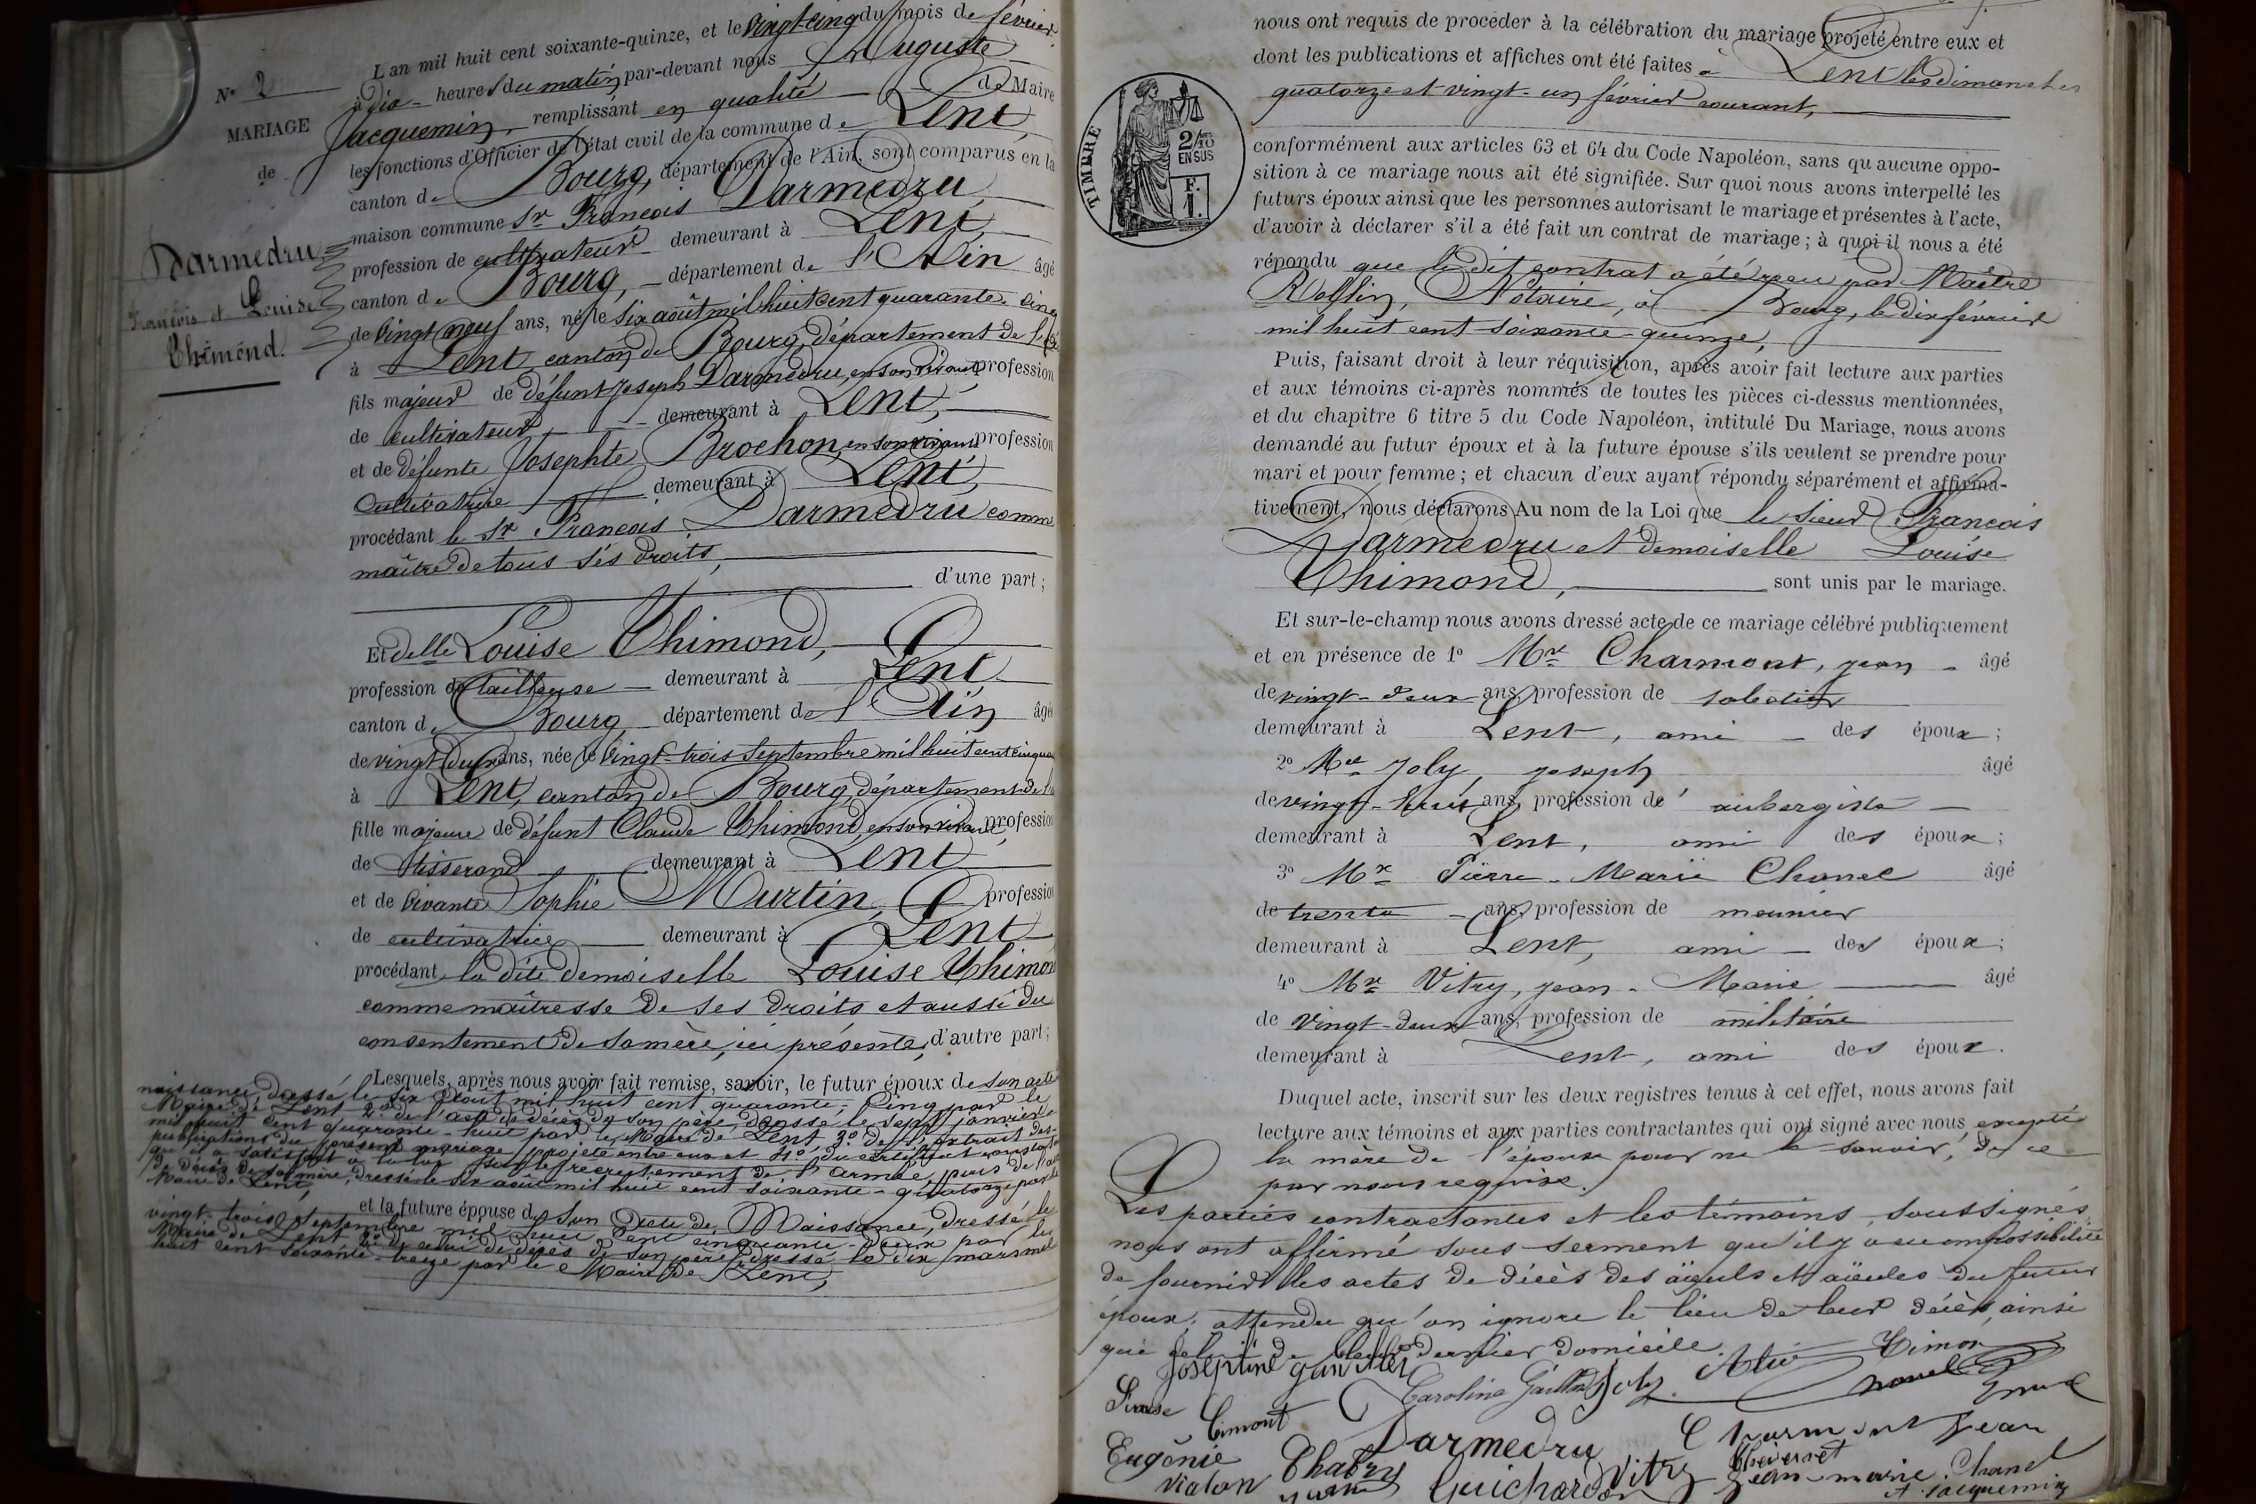 N° 2
MARIAGE
de
Darmedru
François et Louise
Thimond.
L'an mil huit cent soixante-quinze, et le vingt-cinq du mois de février
à dix heures du matin, par-devant nous Auguste
Jacquemin, remplissant en qualité de Maire
les fonctions d'Officier de l'état civil de la commune de Lent,
canton de Bourg, département de l'Ain, sont comparus en la
maison commune Sr François Darmedru,
profession de cultivateur demeurant à Lent,
canton de Bourg, département de l'Ain âgé
de vingt neuf ans, né le six août mil huit cent quarante-cinq
à Lent, canton de Bourg, département de l'
fils majeur de défunt Joseph Darmedru, en son vivant profession
de cultivateur, demeurant à Lent,
et de défunte Josephte Brochon, en son vivant profession
cultivatrice demeurant à Lent,
procédant le Sr François Darmedru comme
maître de tous ses droits,
d'une part ;
Et delle Louise Thimond,
profession de tailleuse demeurant à Lent
canton de Bourg département de l'Ain âgée
de vingt deux ans, née le vingt-trois septembre mil huit cent cinquante
à Lent, canton de Bourg, département de l'
fille majeure de défunt Claude Thimond, en son vivant, profession
de tisserand demeurant à Lent
et de vivante Sophie Murtin, profession
de cultivatrice demeurant à Lent
procédant la dite demoiselle Louise Thimond
comme maîtresse de ses droits et aussi du
consentement de sa mère, ici présente, d'autre part ;
Lesquels, après nous avoir fait remise, savoir, le futur époux de son acte
naissance dressé le six août mil huit cent quarante-cinq par le
Maire de Lent 2° de l'acte de décès de son père, dressé le sept janvier
mil huit cent quarante-huit par le Maire de Lent 3° de l'extrait des
publications du présent mariage projeté entre eux et 4° du certificat constatant
qu'il a satisfait à la loi sur le recrutement de l'armée, puis de l'acte
de décès de sa mère, dressé le six août mil huit cent soixante-quatorze par le
Maire de Lent,
et la future épouse de son acte de Naissance, dressé le
vingt-trois septembre mil huit cent cinquante-deux par le
Maire de Lent 2° de celui de décès de son père dressé le dix mars mil
huit cent soixante-treize par le Maire de Lent,
nous ont requis de procéder à la célébration du mariage projeté entre eux et
dont les publications et affiches ont été faites à Lent les dimanches
quatorze et vingt-un février courant,
TIMBRE
2/10
EN SUS
F.
1.
conformément aux articles 63 et 64 du Code Napoléon, sans qu'aucune oppo-
sition à ce mariage nous ait été signifiée. Sur quoi nous avons interpellé les
futurs époux ainsi que les personnes autorisant le mariage et présentes à l'acte,
d'avoir à déclarer s'il a été fait un contrat de mariage ; à quoi il nous a été
répondu que le dit contrat a été reçu par Maître
Rollin, Notaire, à Bourg, le dix février
mil huit cent soixante-quinze,
Puis, faisant droit à leur réquisition, après avoir fait lecture aux parties
et aux témoins ci-après nommés de toutes les pièces ci-dessus mentionnées,
et du chapitre 6 titre 5 du Code Napoléon, intitulé Du Mariage, nous avons
demandé au futur époux et à la future épouse s'ils veulent se prendre pour
mari et pour femme ; et chacun d'eux ayant répondu séparément et affirma-
tivement, nous déclarons Au nom de la Loi que le sieur François
Darmedru et demoiselle Louise
Thimond, sont unis par le mariage.
Et sur-le-champ nous avons dressé acte de ce mariage célébré publiquement
et en présence de 1° Mr Charmont, jean âgé
de vingt-deux ans, profession de sabotier
demeurant à Lent, ami des époux ;
2° Mr Joly, joseph âgé
de vingt-huit ans, profession de aubergiste
demeurant à Lent, ami des époux ;
3° Mr Pierre-Marie Chanel âgé
de trente ans, profession de meunier
demeurant à Lent, ami des époux ;
4° Mr Vitry, jean-Marie âgé
de vingt-deux ans, profession de militaire
demeurant à Lent, ami des époux.
Duquel acte, inscrit sur les deux registres tenus à cet effet, nous avons fait
lecture aux témoins et aux parties contractantes qui ont signé avec nous, excepté
la mère de l'épouse pour ne le savoir, de ce
par nous requise.
Les parties contractantes et les témoins soussignés
nous ont affirmé sous serment qu'il y a eu impossibilité
de fournir les actes de décès des aïeuls et aïeules du futur
époux, attendu qu'on ignore le lieu de leur décès, ainsi
que celui de leur dernier domicile.
Joséphine
Caroline Joly Timon
Chanel
Cimont
Darmedru Charmont Jean
Eugénie
Vialon Chabry Guichardon Vitry Thévenet
Jean-marie Chanel
A. Jacquemin